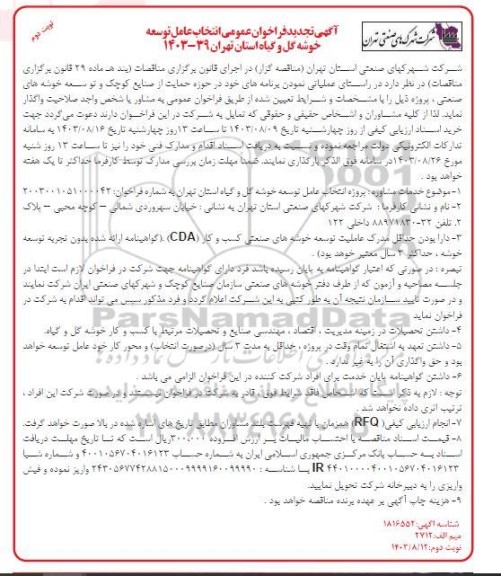 نوبت دوم
آگهی تجدید فراخوان عمومی انتخاب عامل توسعه
خوشه گل و گیاه استان تهران ۳۹-۱۴۰۳
شرکت شهرکهای صنعتی تهران
شرکت شهرکهای صنعتی استان تهران (مناقصه گزار) در اجرای قانون برگزاری مناقصات (بند هـ ماده ۲۹ قانون برگزاری
مناقصات) در نظر دارد در راستای عملیاتی نمودن برنامه های خود در حوزه حمایت از صنایع کوچک و تو سعه خوشه های
صنعتی ، پروژه ذیل را با مشخصات و شرایط تعیین شده از طریق فراخوان عمومی به مشاور یا شخص واجد صلاحیت واگذار
نماید. لذا از کلیه مشاوران و اشخاص حقیقی و حقوقی که تمایل به شرکت در این فراخوان دارند دعوت می‌گردد جهت
خرید اسناد ارزیابی کیفی از روز چهارشنبه تاریخ ۱۴۰۳/۰۸/۰۹ تا ساعت ۱۳ روز چهارشنبه تاریخ ۱۴۰۳/۰۸/۱۶ به سامانه
تدارکات الکترونیکی دولت مراجعه نموده و نسبت به دریافت اسناد اقدام و مدارک فنی خود را نیز تا ساعت ۱۳ روز شنبه
مورخ ۱۴۰۳/۰۸/۲۶ در سامانه فوق الذکر بارگذاری نمایند. ضمناً مهلت زمان بررسی مدارک توسط کارفرما حداکثر تا یک هفته
خواهد بود .
۱-موضوع خدمات مشاوره : پروژه انتخاب عامل توسعه خوشه گل و گیاه استان تهران به شماره فراخوان: ۲۰۰۳۰۰۱۰۵۱۰۰۰۰۴۲
۲- نام و نشانی کارفرما : شرکت شهرکهای صنعتی استان تهران به نشانی : خیابان سهروردی شمالی – کوچه محبی – پلاک
۲. تلفن ۳۲-۸۸۹۷۱۸۳۰ داخلی ۱۲۲
۳- دارا بودن حداقل مدرک عاملیت توسعه خوشه های صنعتی کسب و کار (CDA) .(گواهینامه ارائه شده بدون تجربه توسعه
خوشه ، حداکثر ۳ سال معتبر خواهد بود) .
تبصره : در صورتی که اعتبار گواهینامه به پایان رسیده باشد فرد دارای گواهینامه جهت شرکت در فراخوان لازم است ابتدا در
جلسه مصاحبه و آزمون که از طرف دفتر خوشه های صنعتی سازمان صنایع کوچک و شهرکهای صنعتی ایران شرکت نمایند
و در صورت تأیید سازمان نتیجه آن به طور کتبی به این شرکت اعلام گردد و فرد مذکور سپس می تواند اقدام به شرکت در
فراخوان نماید
۴- داشتن تحصیلات در زمینه مدیریت ، اقتصاد ، مهندسی صنایع و تحصیلات مرتبط با کسب و کار خوشه گل و گیاه.
۵- داشتن تعهد به اشتغال تمام وقت در پروژه ، حداقل به مدت ۳ سال (در صورت انتخاب) و محور کار خود عامل توسعه خواهد
بود و حق واگذاری آن را به غیر ندارد .
۶- داشتن گواهینامه پایان خدمت برای افراد شرکت کننده در این فراخوان الزامی می باشد .
توجه : لازم به ذکر است که اشخاص فاقد شرایط فوق ، قادر به شرکت در فراخوان نیستند و در صورت شرکت این افراد ،
ترتیب اثری داده نخواهد شد .
۷- انجام ارزیابی کیفی( RFQ) همزمان با تهیه فهرست بلند مشاوران مطابق تاریخ های اشاره شده در بالا صورت خواهد گرفت.
۸- قیمت اسناد مناقصه با احتساب مالیات بر ارزش افزوده ۳۰۰،۰۰۰ ریال است که تا تاریخ مهلت دریافت
اسناد به حساب بانک مرکزی جمهوری اسلامی ایران به شماره حساب ۴۰۰۱۰۵۶۷۰۴۰۱۶۱۲۳ و شماره شبا
IR ۴۴۰۱۰۰۰۰۴۰۰۱۰۵۶۷۰۴۰۱۶۱۲۳ با شناسه : واریز نموده و فیش
واریزی را به دبیرخانه شرکت تحویل نمایید.
۹- هزینه چاپ آگهی بر عهده برنده مناقصه خواهد بود .
شناسه آگهی: ۱۸۱۶۵۵۲
میم الف: ۲۷۱۲
نوبت دوم: ۱۴۰۳/۸/۱۲
ParsNamadData